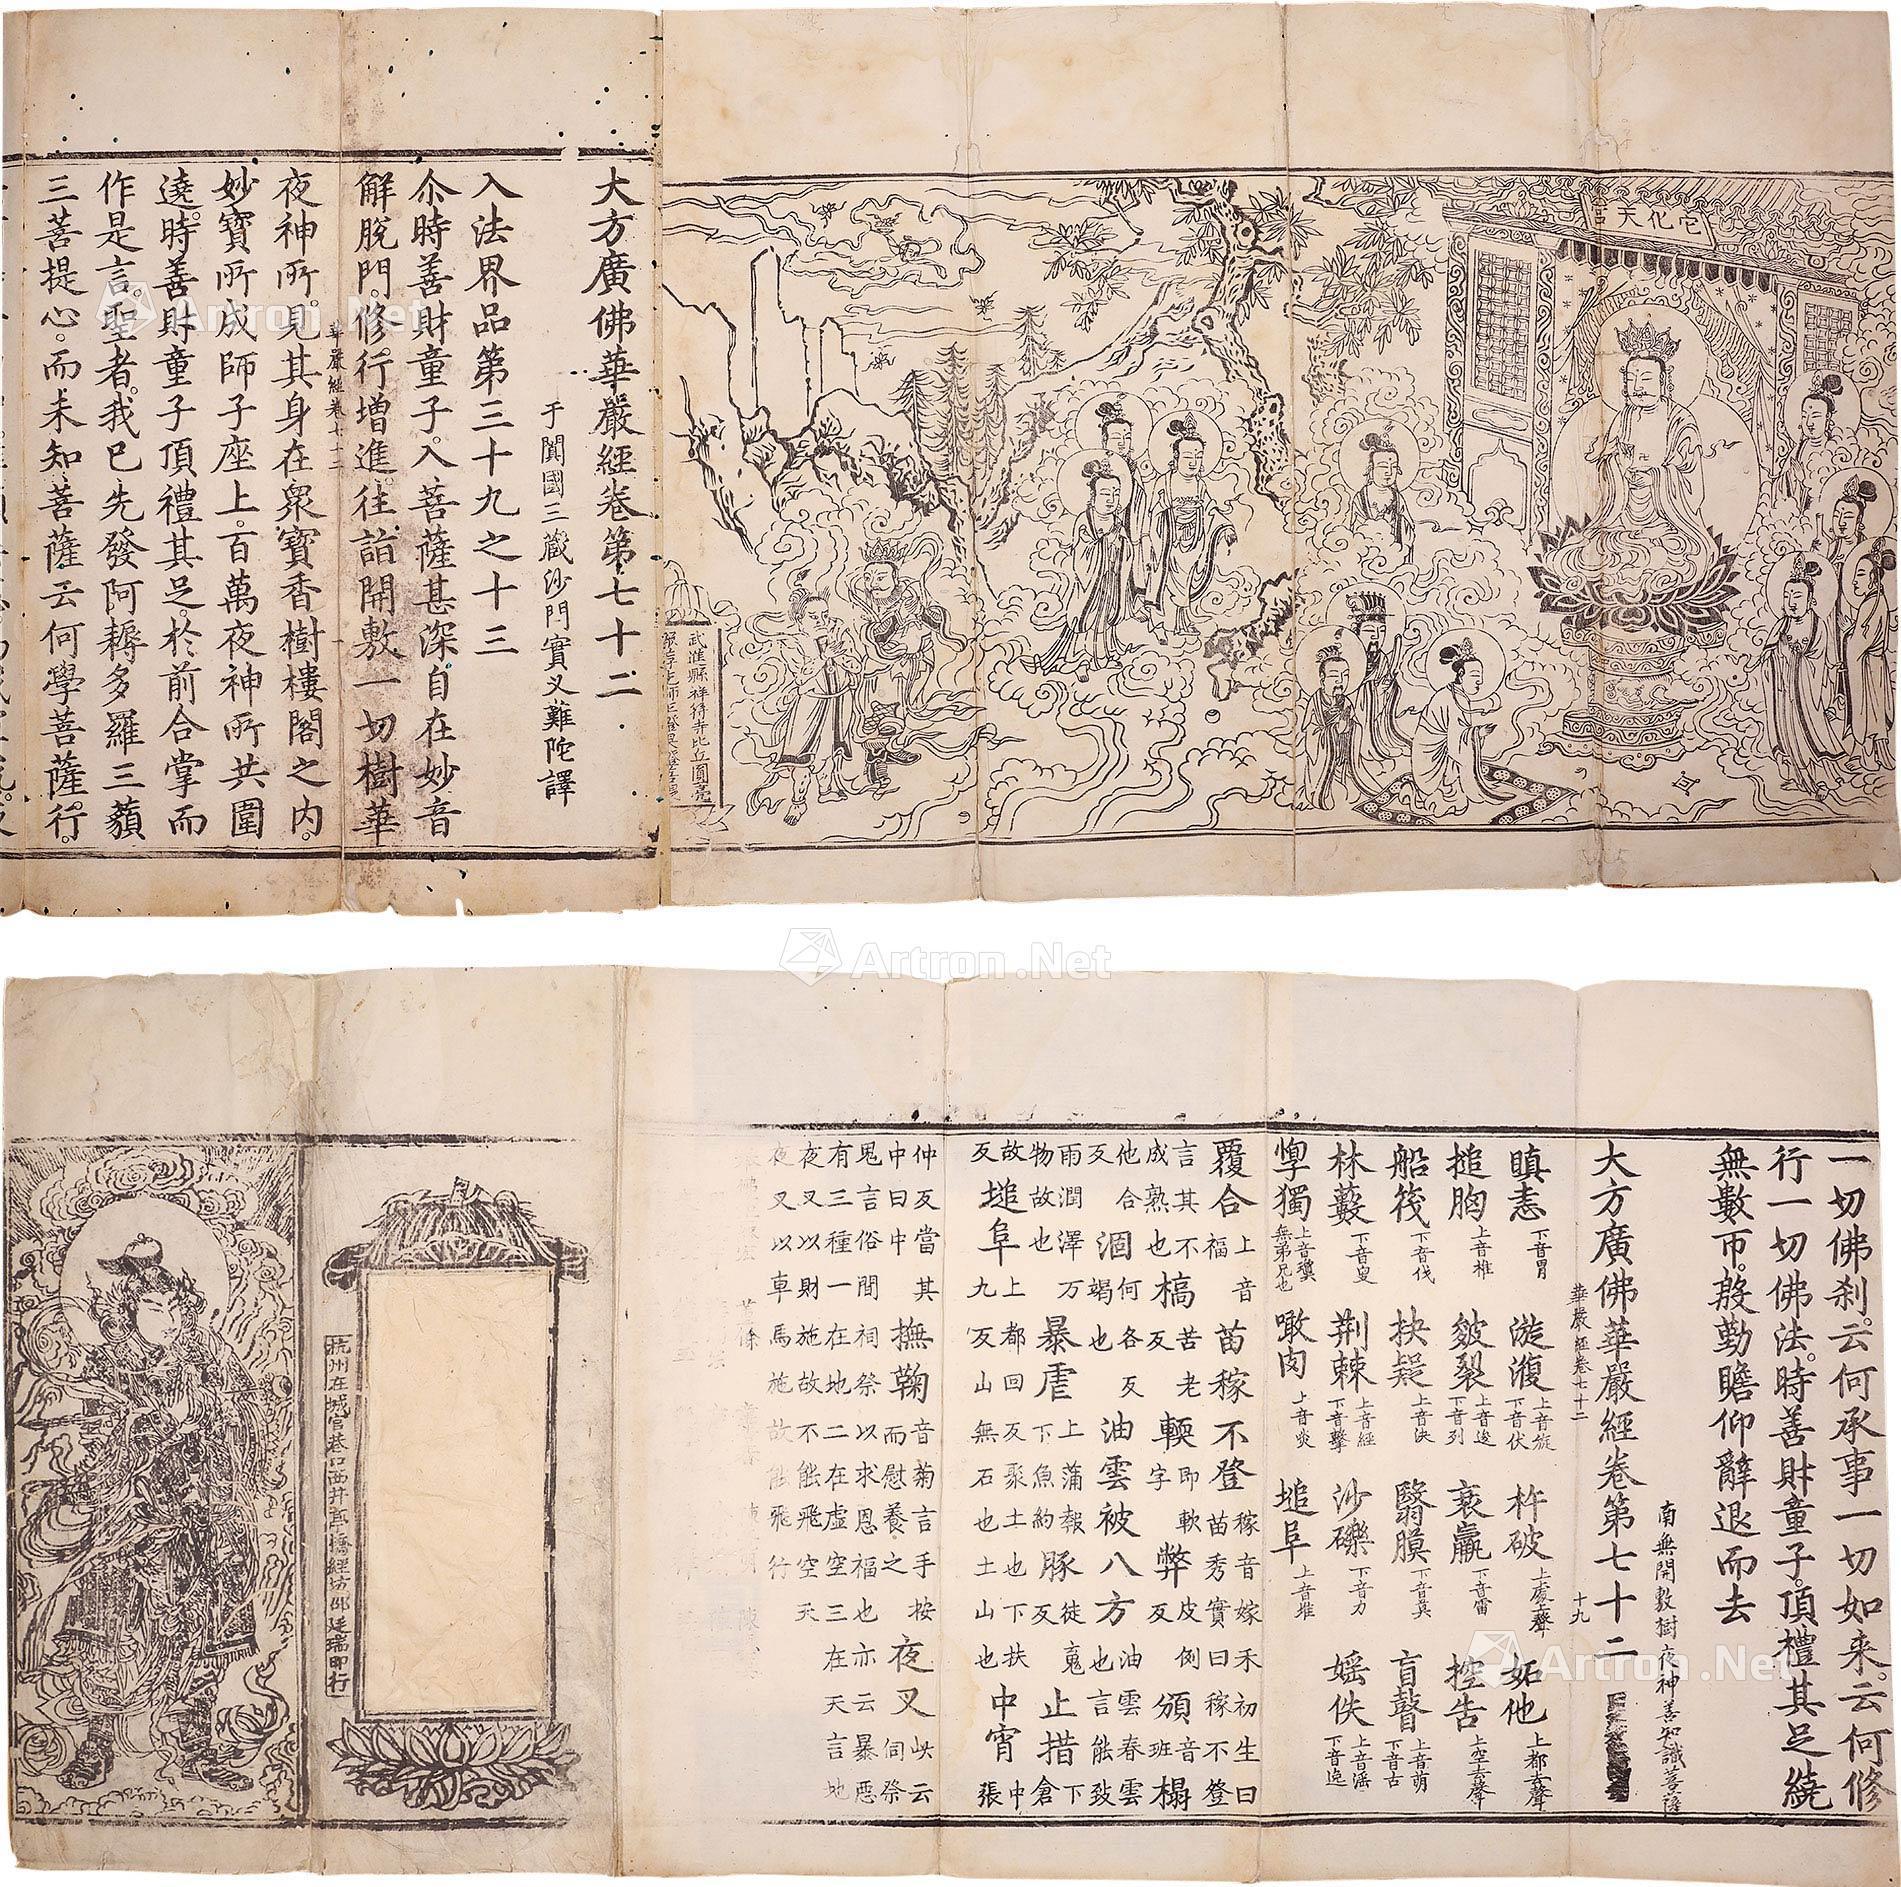 它化天宮
武進縣祥符寺比丘圓亮
大方廣佛華嚴經卷第七十二
于闐國三藏沙門實叉難陀譯
入法界品第三十九之十三
尒時善財童子。入菩薩甚深自在妙音
解脫門。修行增進。往詣開敷一切樹華
華嚴經卷七十二 一
夜神所。見其身在眾寶香樹樓閣之內。
妙寶所成師子座上。百萬夜神所共圍
遶。時善財童子頂禮其足。於前合掌而
作是言。聖者。我已先發阿耨多羅三藐
三菩提心。而未知菩薩云何學菩薩行。
一切佛刹。云何承事一切如来。云何修
行一切佛法。時善財童子。頂禮其足繞
無數帀。殷勤瞻仰辭退而去
南無開敷樹夜神善知識菩薩
大方廣佛華嚴經卷第七十二
華嚴經卷七十二 十九
瞋恚 下音胃 漩澓 上音旋下音伏 杵破 上處上聲 妬他 上都去聲
搥胸 上音椎 皴裂 上音逡下音列 衰羸 下音雷 控告 上空去聲
船筏 下音伐 抉疑 上音決 翳膜 下音莫 盲瞽 上音萌下音古
林藪 下音叟 荊棘 上音經下音擊 沙礫 下音力 婬佚 上音滛下音逸
惸獨 上音瓊無弟兄也 噉肉 上音炎 塠阜 上音堆
覆合 上音福 苗稼不登 稼音嫁禾初生曰苗秀實曰稼不登
言其不成熟也 槁 苦老反 輭 即軟字 弊 皮例反 頒 音班 榻
他合反 涸 何各反竭也 油雲被八方 油雲春雲也言能致
雨潤澤万物故也 暴虐 上蒲報下魚約反 豚 徒䰟反 止措 下倉
故反 塠阜 上都回反聚土也下扶九反山無石也土山也 中宵 中張
仲反當其中曰中 撫鞠 音菊言手按而慰養之 夜叉 此云伺祭
鬼言俗間祠祭以求恩福也亦云暴惡
有三種一在地二在虛空三在天言地
夜叉以財施故不能飛空天
夜叉以車馬施故能飛行
杭州在城官巷口西井亭橋經坊邵廷瑞印行
Artron.Net